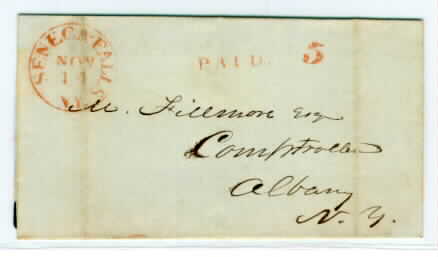 SENECA-FALLS
NOV
11
N.Y.
PAID. 5
M. Fillmore Esq
Comptroller
Albany
N. Y.